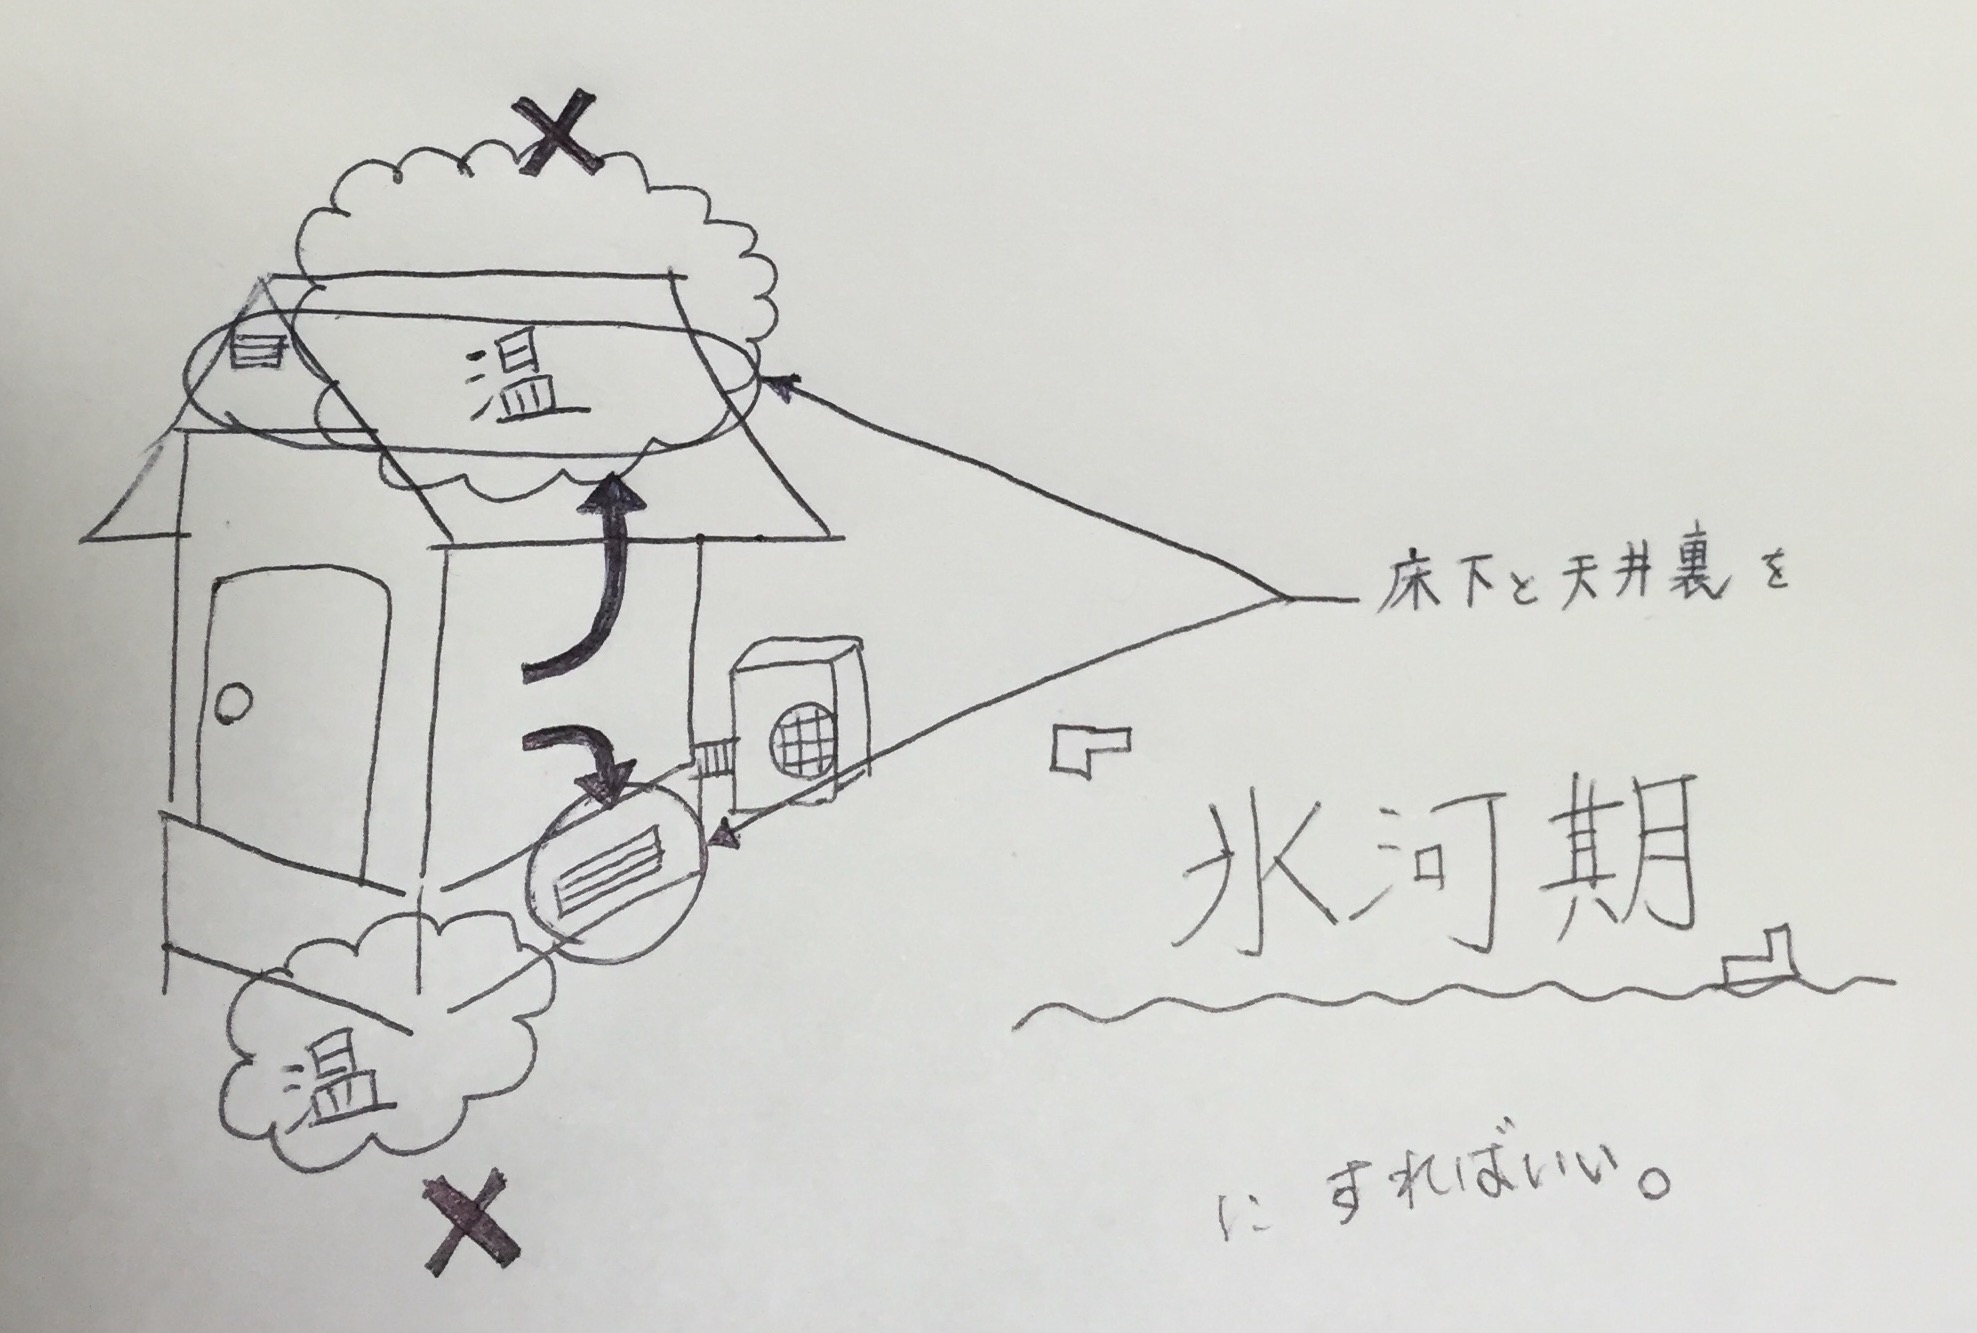 温
床下と天井裏を
「氷河期」
にすればいい。
温